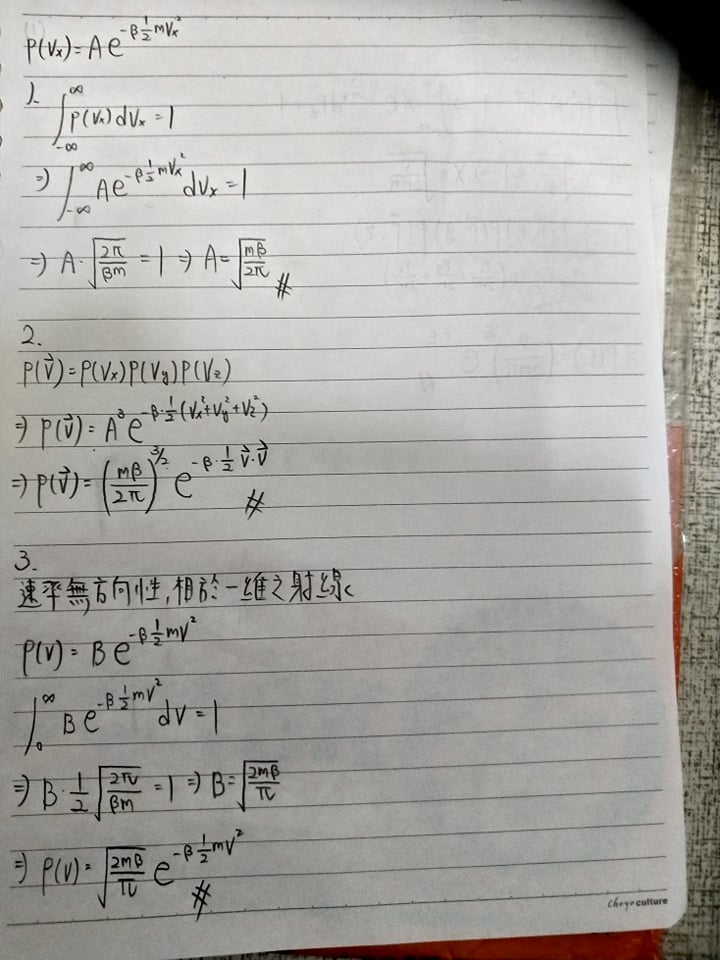 P(Vx) = A e^{-β\frac{1}{2}mVx²}
1.
∫_{-∞}^{∞} P(Vx) dVx = 1
⇒ ∫_{-∞}^{∞} A e^{-β\frac{1}{2}mVx²} dVx = 1
⇒ A·√(\frac{2π}{βm}) = 1 ⇒ A = √(\frac{mβ}{2π}) #
2.
P(\vec{V}) = P(Vx)P(Vy)P(Vz)
⇒ P(\vec{V}) = A³ e^{-β·\frac{1}{2}(Vx²+Vy²+Vz²)}
⇒ P(\vec{V}) = (\frac{mβ}{2π})^{3/2} e^{-β·\frac{1}{2}\vec{V}·\vec{V}} #
3.
速率無方向性,相於一維之射線
P(V) = B e^{-β\frac{1}{2}mV²}
∫_{0}^{∞} B e^{-β\frac{1}{2}mV²} dV = 1
⇒ B·\frac{1}{2}√(\frac{2π}{βm}) = 1 ⇒ B = √(\frac{2mβ}{π})
⇒ P(V) = √(\frac{2mβ}{π}) e^{-β\frac{1}{2}mV²} #
Choyo culture